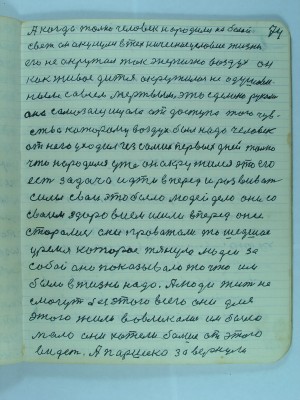 А когда только человек народился на белый 54
свет он окунулся в тсп ничего на условие жизни
его не окружал так энергично воздух он
как живое дитя окружился не одушевлен
ным совсем мертвым это сделано руками
она само защищала от доступа этого чув-
ства которому воздух был надо человек
от него уходил из самых первых дней только
что народился уже он окружился это его
ест задача идти вперед и развиват
силы свои это было людей дело они со
своим здоровием шли вперед они
старались они проватам то шедшое
уремя которое тянуло людей за
собой оно показывало то что им
было в жизни надо. А люди жит не
смогут без этого всего они для
этого жили вовлекали им было
мало они хотели больше от этого
видет. А Паршеко завернули